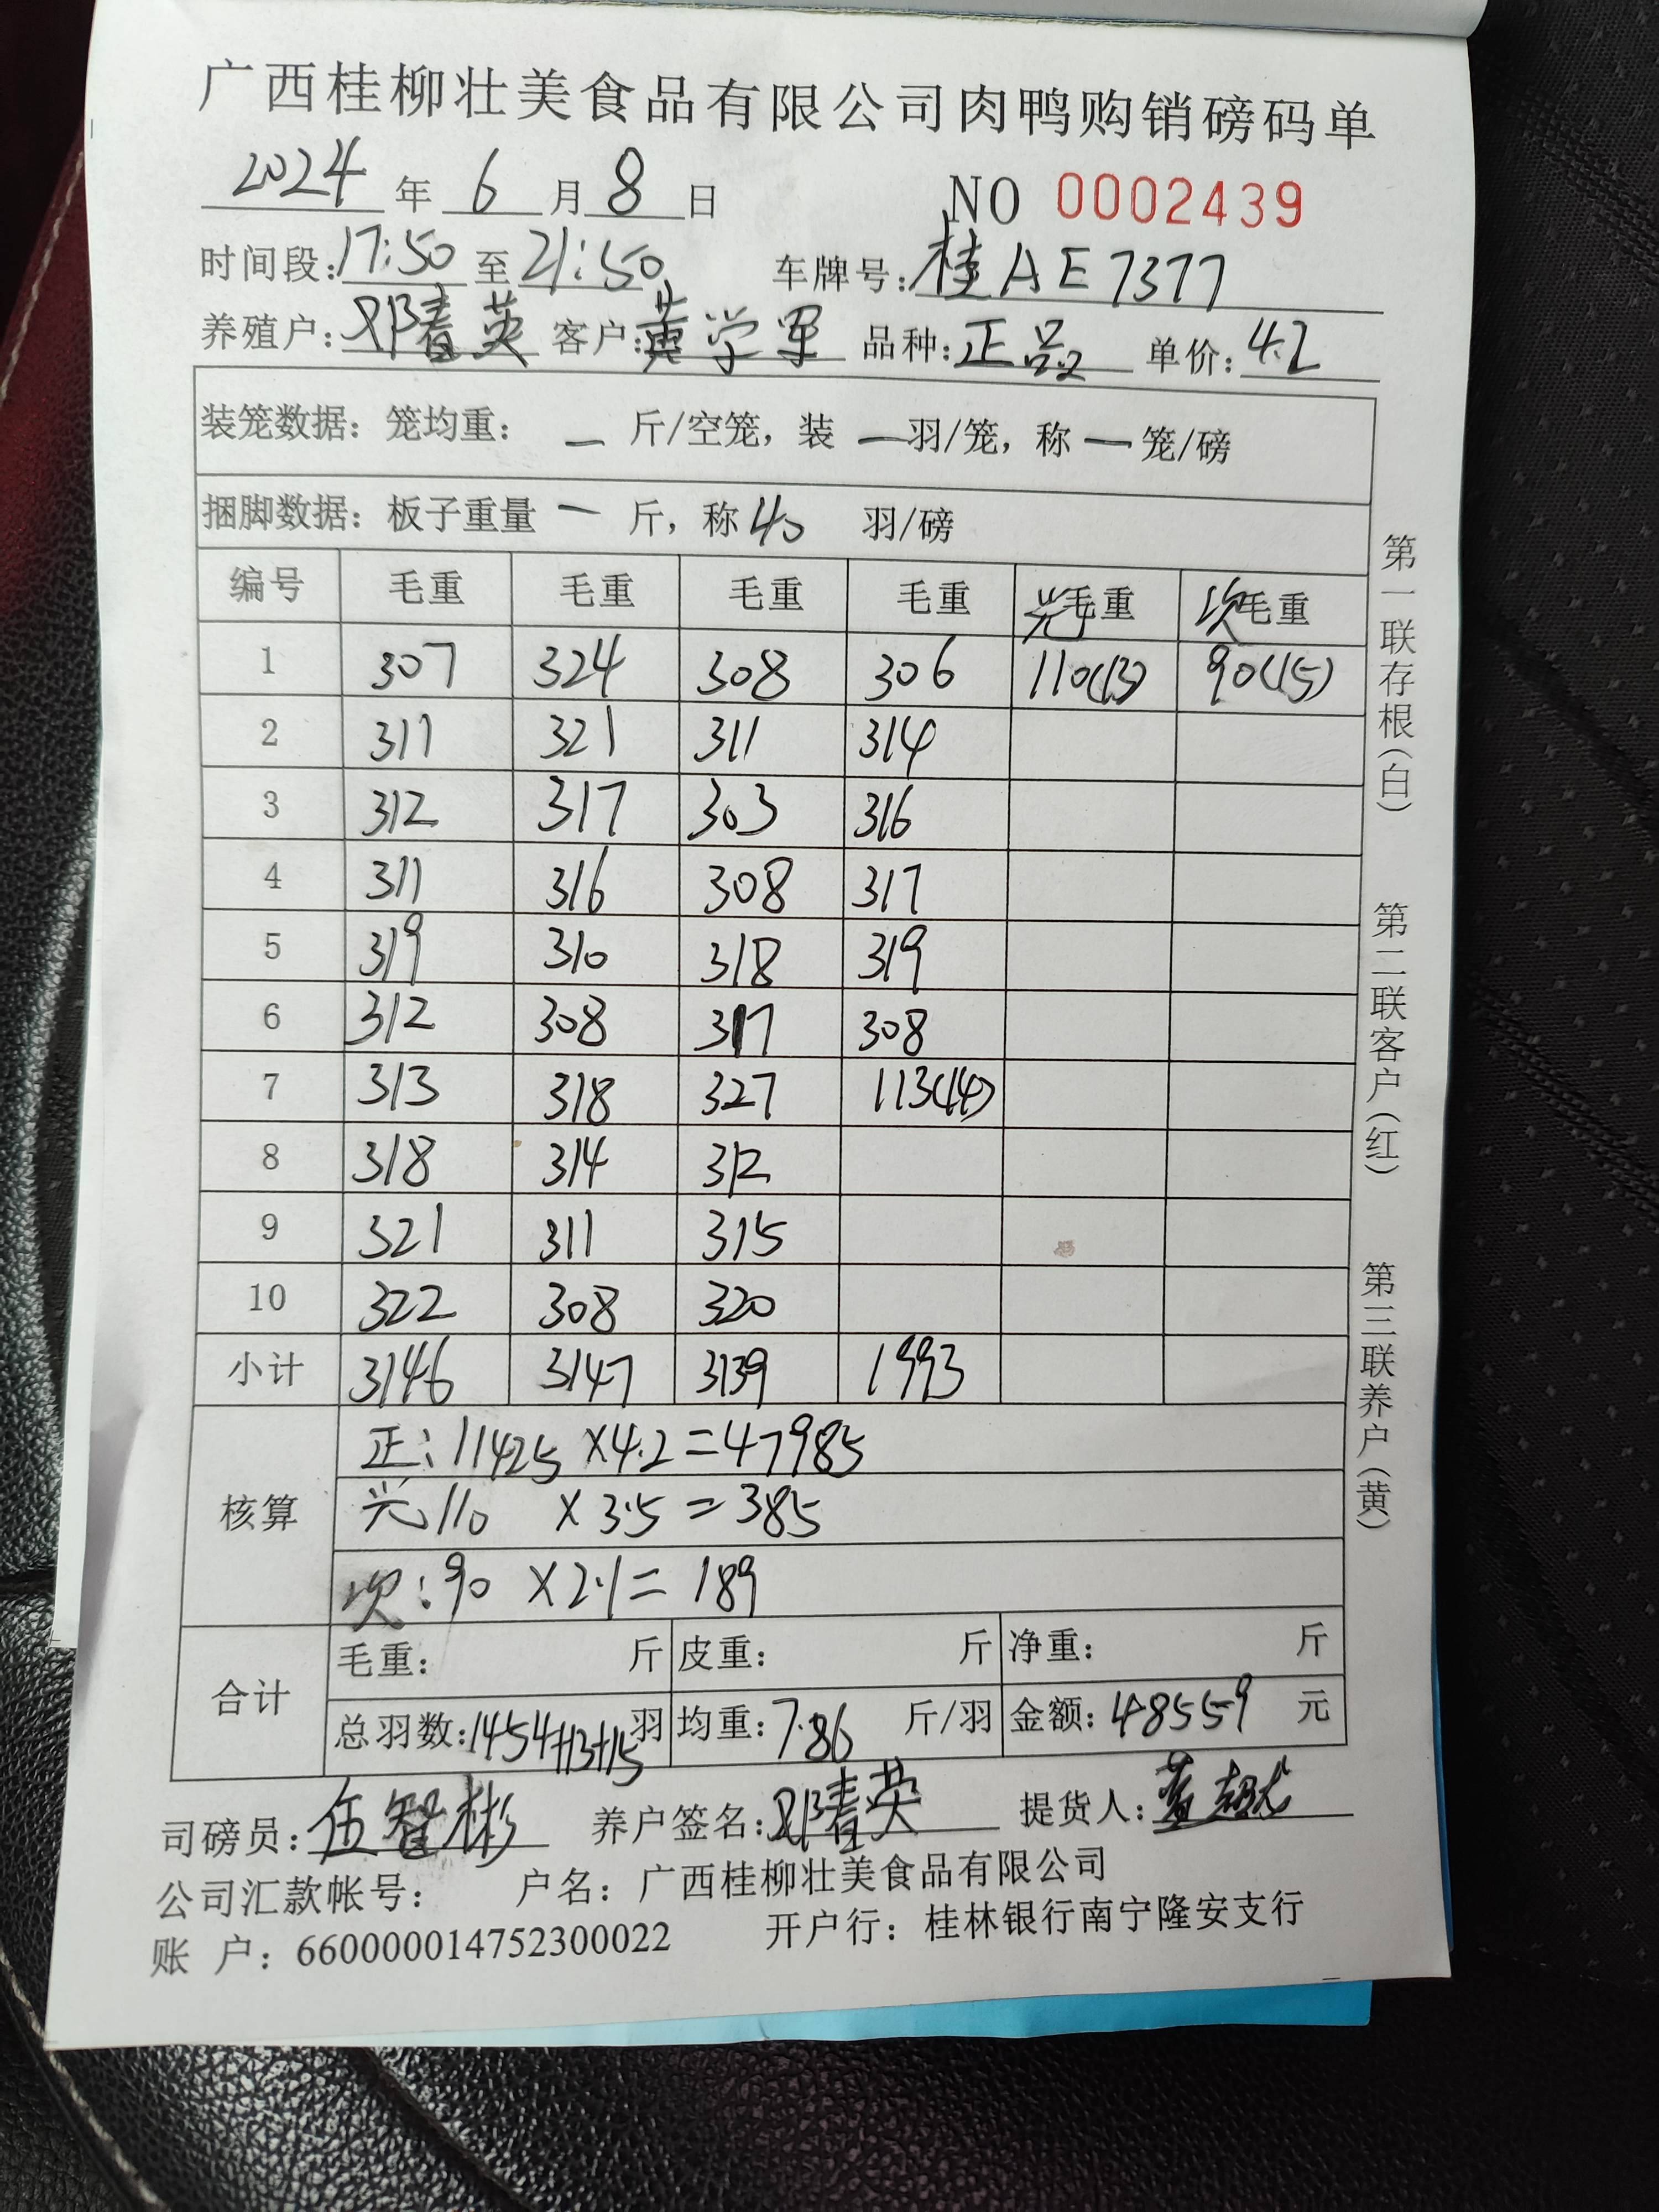 广西桂柳壮美食品有限公司肉鸭购销磅码单
2024 年 6 月 8 日 NO 0002439
时间段:17:50 至 21:50 车牌号:桂AE7377
养殖户:邓春英 客户:黄学军 品种:正品 单价:4.2
装笼数据：笼均重： — 斤/空笼，装 — 羽/笼，称 — 笼/磅
捆脚数据：板子重量 — 斤，称 40 羽/磅
编号 毛重 毛重 毛重 毛重 光毛重 次毛重
1 307 324 308 306 110(13) 90(15)
2 311 321 311 314
3 312 317 303 316
4 311 316 308 317
5 319 310 318 319
6 312 308 317 308
7 313 318 327 113(14)
8 318 314 312
9 321 311 315
10 322 308 320
小计 3146 3147 3139 1993
核算
正:11425 ×4.2=47985
光110 ×3.5=385
次:90 ×2.1=189
合计
毛重： 斤 皮重： 斤 净重： 斤
总羽数:1454+13+15羽 均重:7.86 斤/羽 金额:48559 元
司磅员:伍智彬 养户签名:邓春英 提货人:黄
公司汇款帐号： 户名：广西桂柳壮美食品有限公司
账 户：660000014752300022 开户行：桂林银行南宁隆安支行
第一联存根(白)
第二联客户(红)
第三联养户(黄)